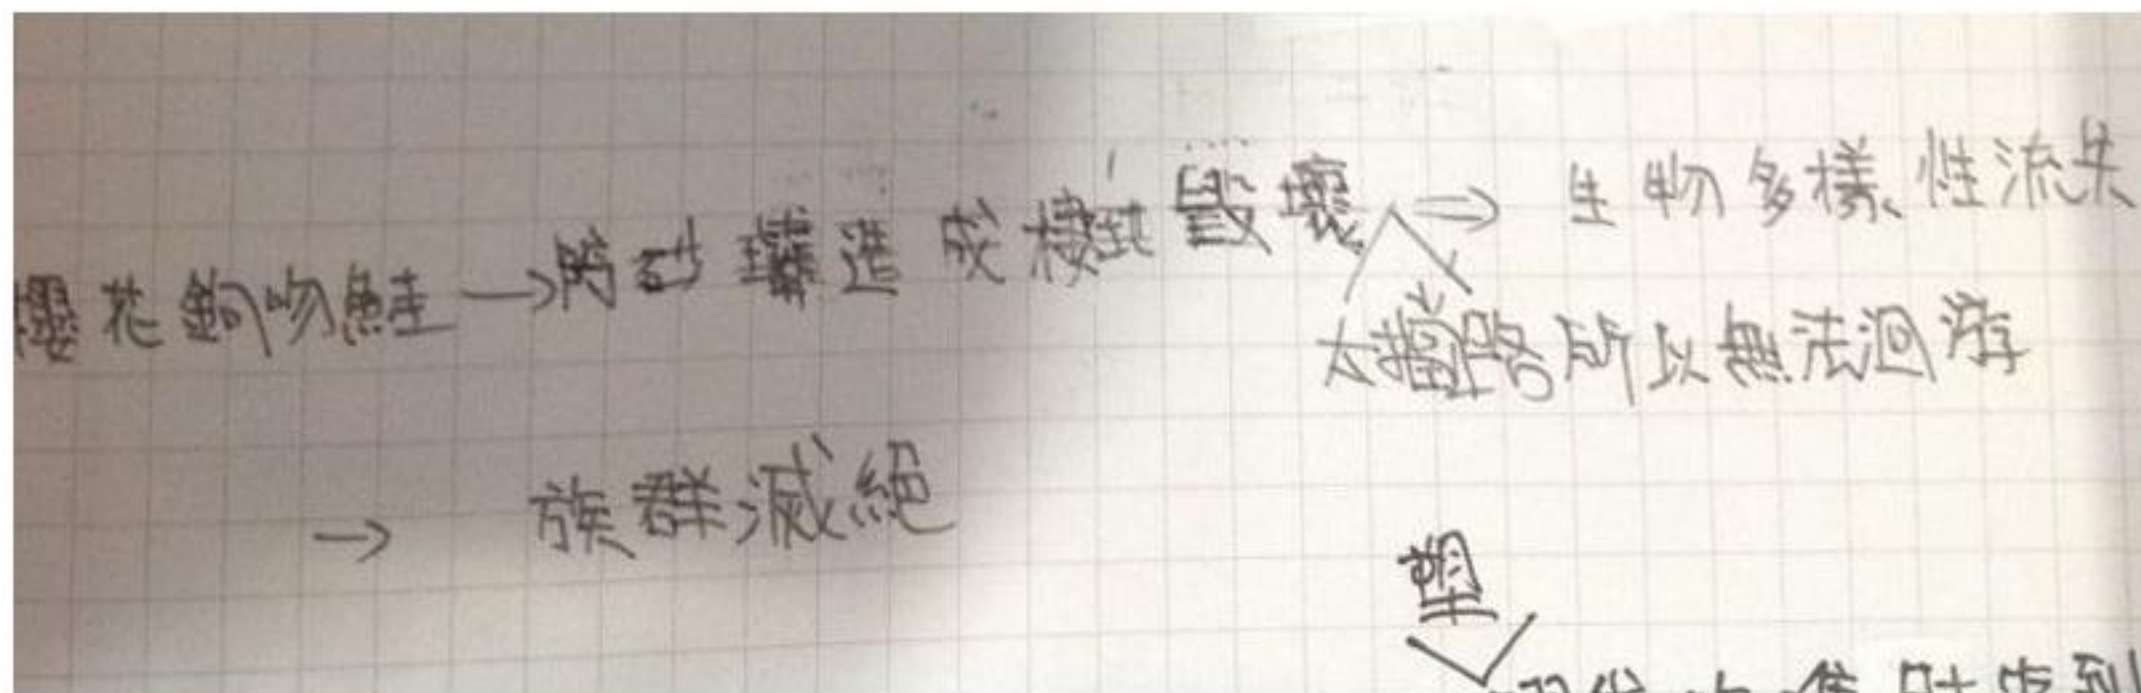 櫻花鉤吻鮭→防砂壩造成棲地毀壞⇒生物多樣性流失
攔路所以無法洄游
→ 族群滅絕
塑